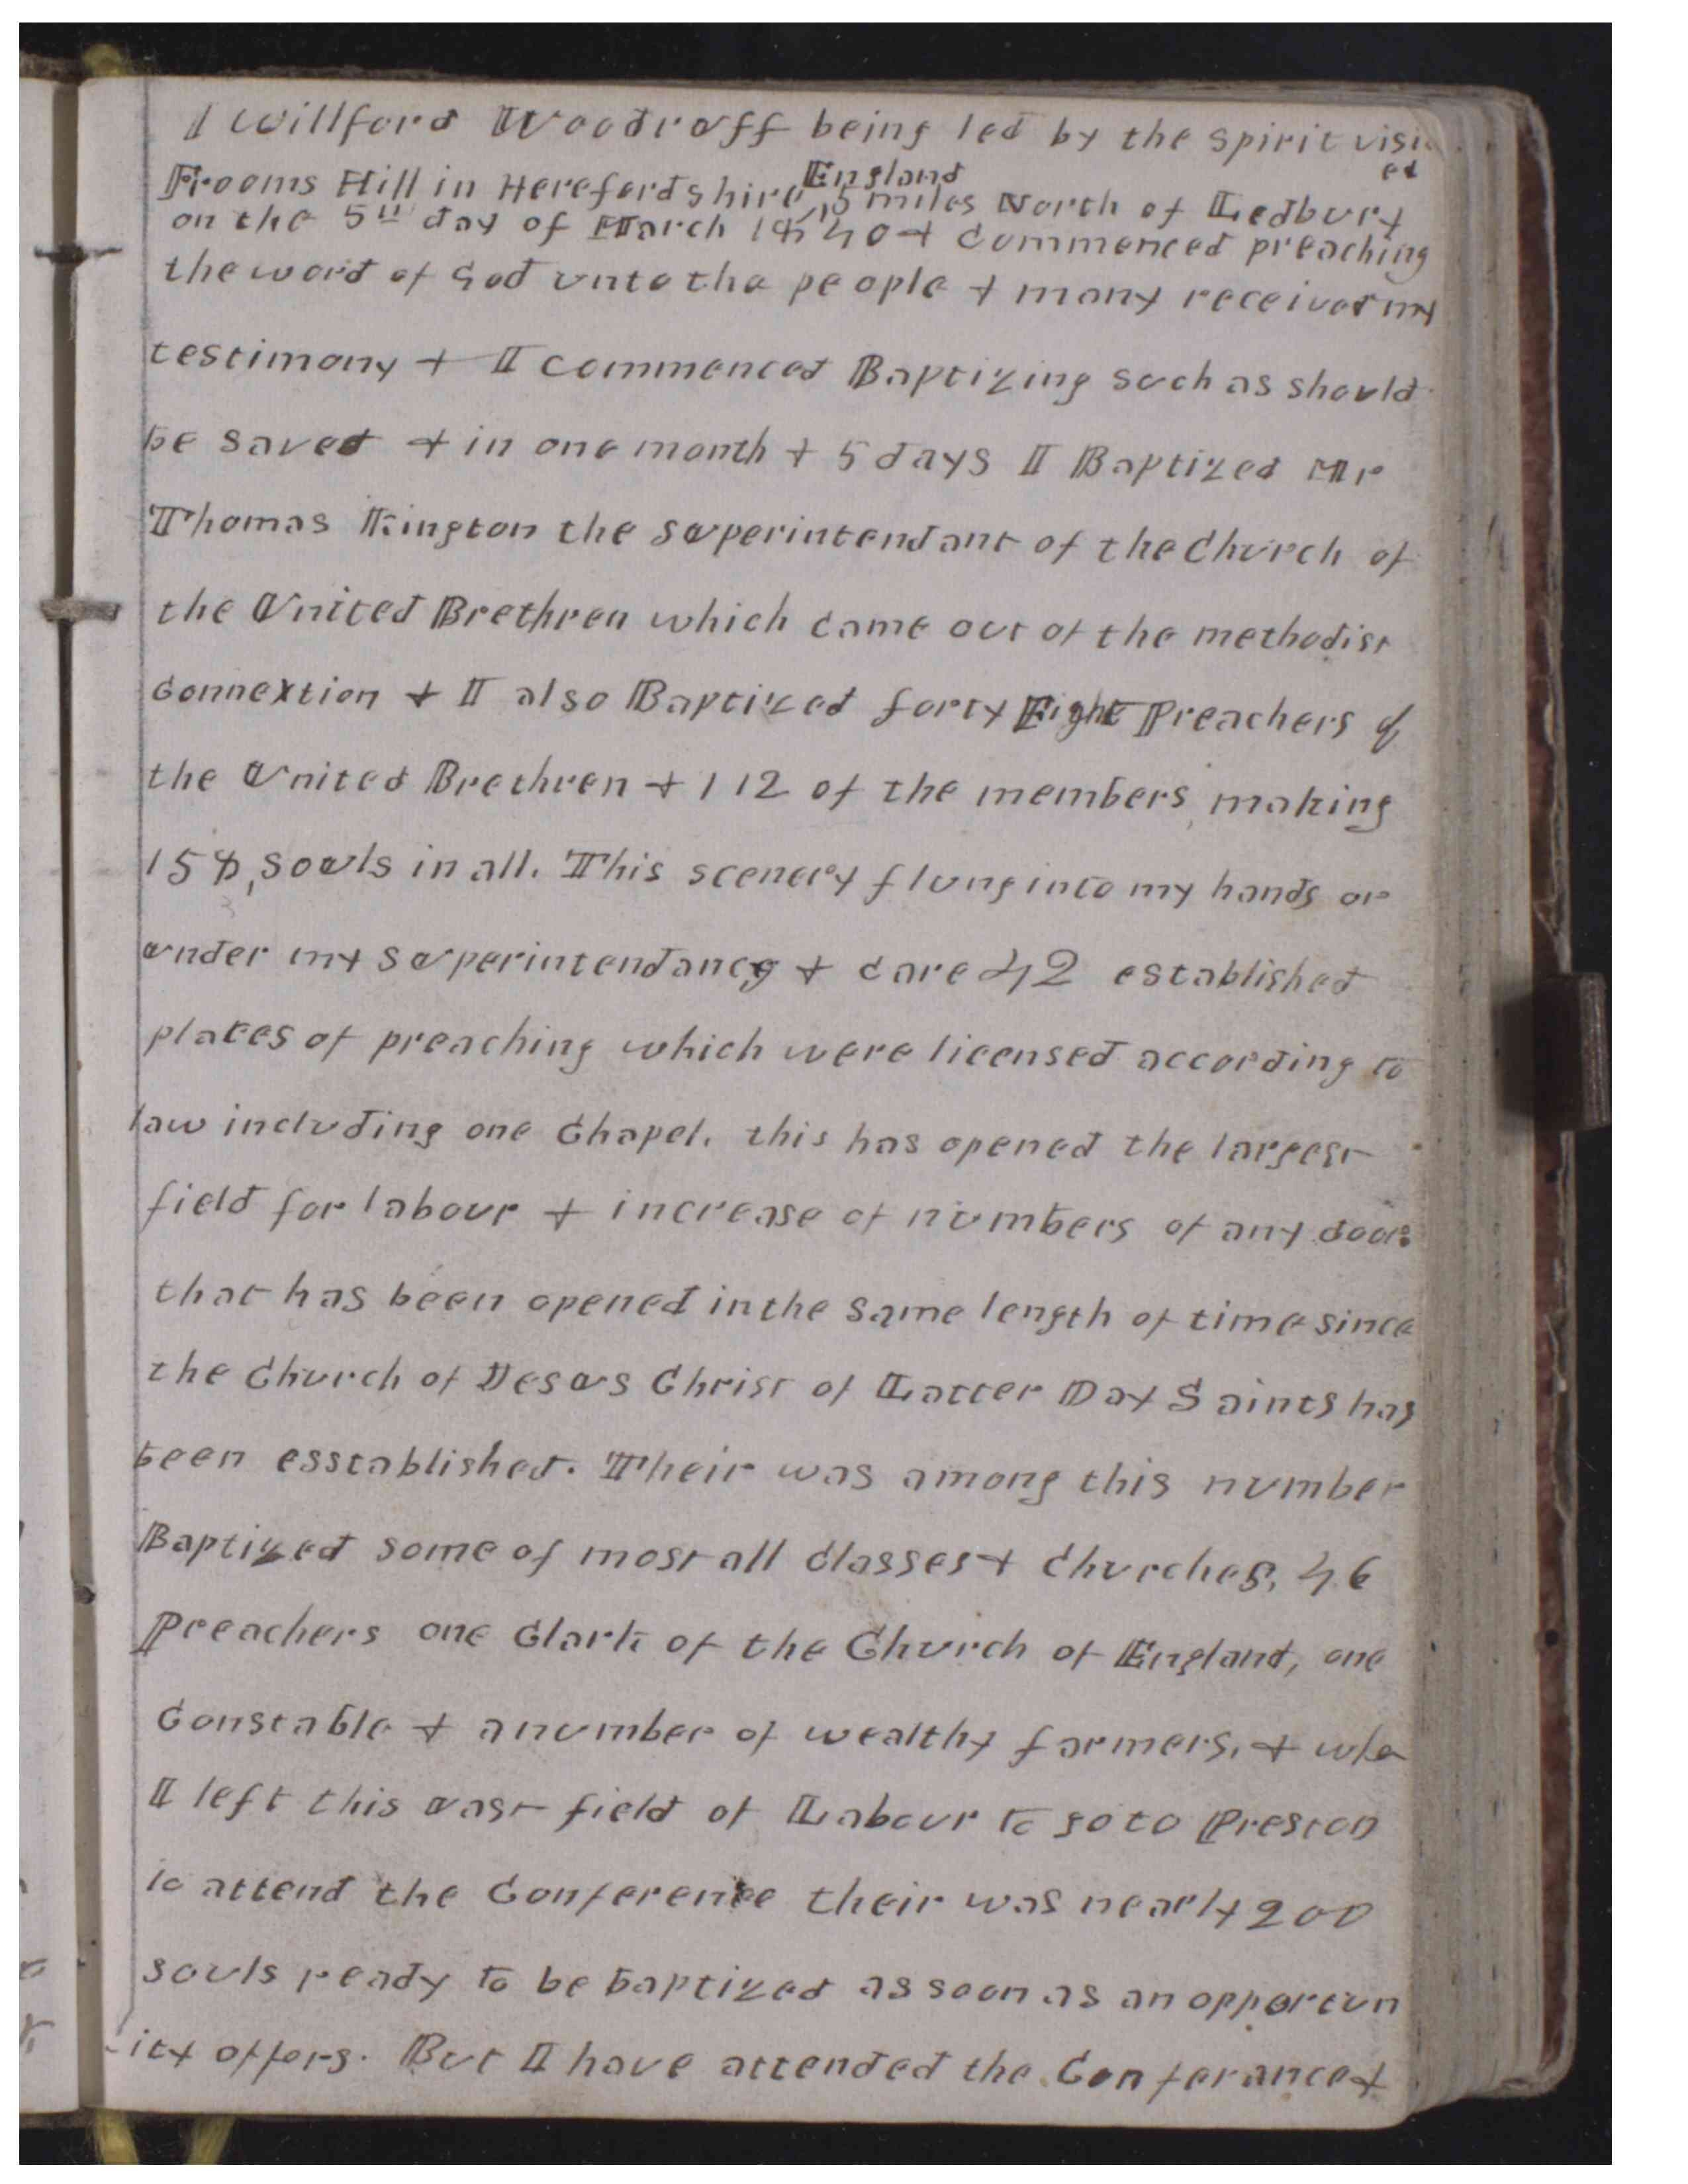 I Willford Woodruff being led by the spirit visit
ed
Frooms Hill in Herefordshire England, 15 miles North of Ledbury
on the 5th day of March 1840 & Commenced preaching
the word of God unto the people & many received my
testimony & I Commenced Baptizing such as should
be saved & in one month & 5 days I Baptized Mr
Thomas Kington the Superintendant of the Church of
the United Brethren which Came out of the methodist
Connextion & I also Baptized forty Eight Preachers of
the United Brethren & 112 of the members making
158, souls in all. This scenery flung into my hands or
under my Superintendancy & Care 42 established
places of preaching which were licensed according to
law including one Chapel. this has opened the largest
field for labour & increase of numbers of any door
that has been opened in the same length of time since
the Church of Jesus Christ of Latter Day Saints has
been esstablished. Their was among this number
Baptized some of most all Classes & Churches, 46
Preachers one Clark of the Church of England, one
Constable & a number of wealthy farmers, & when
I left this vast field of Labour to go to Preston
to attend the Conference their was nearly 200
souls ready to be baptized as soon as an opportun
-ity offers. But I have attended the Conferance &